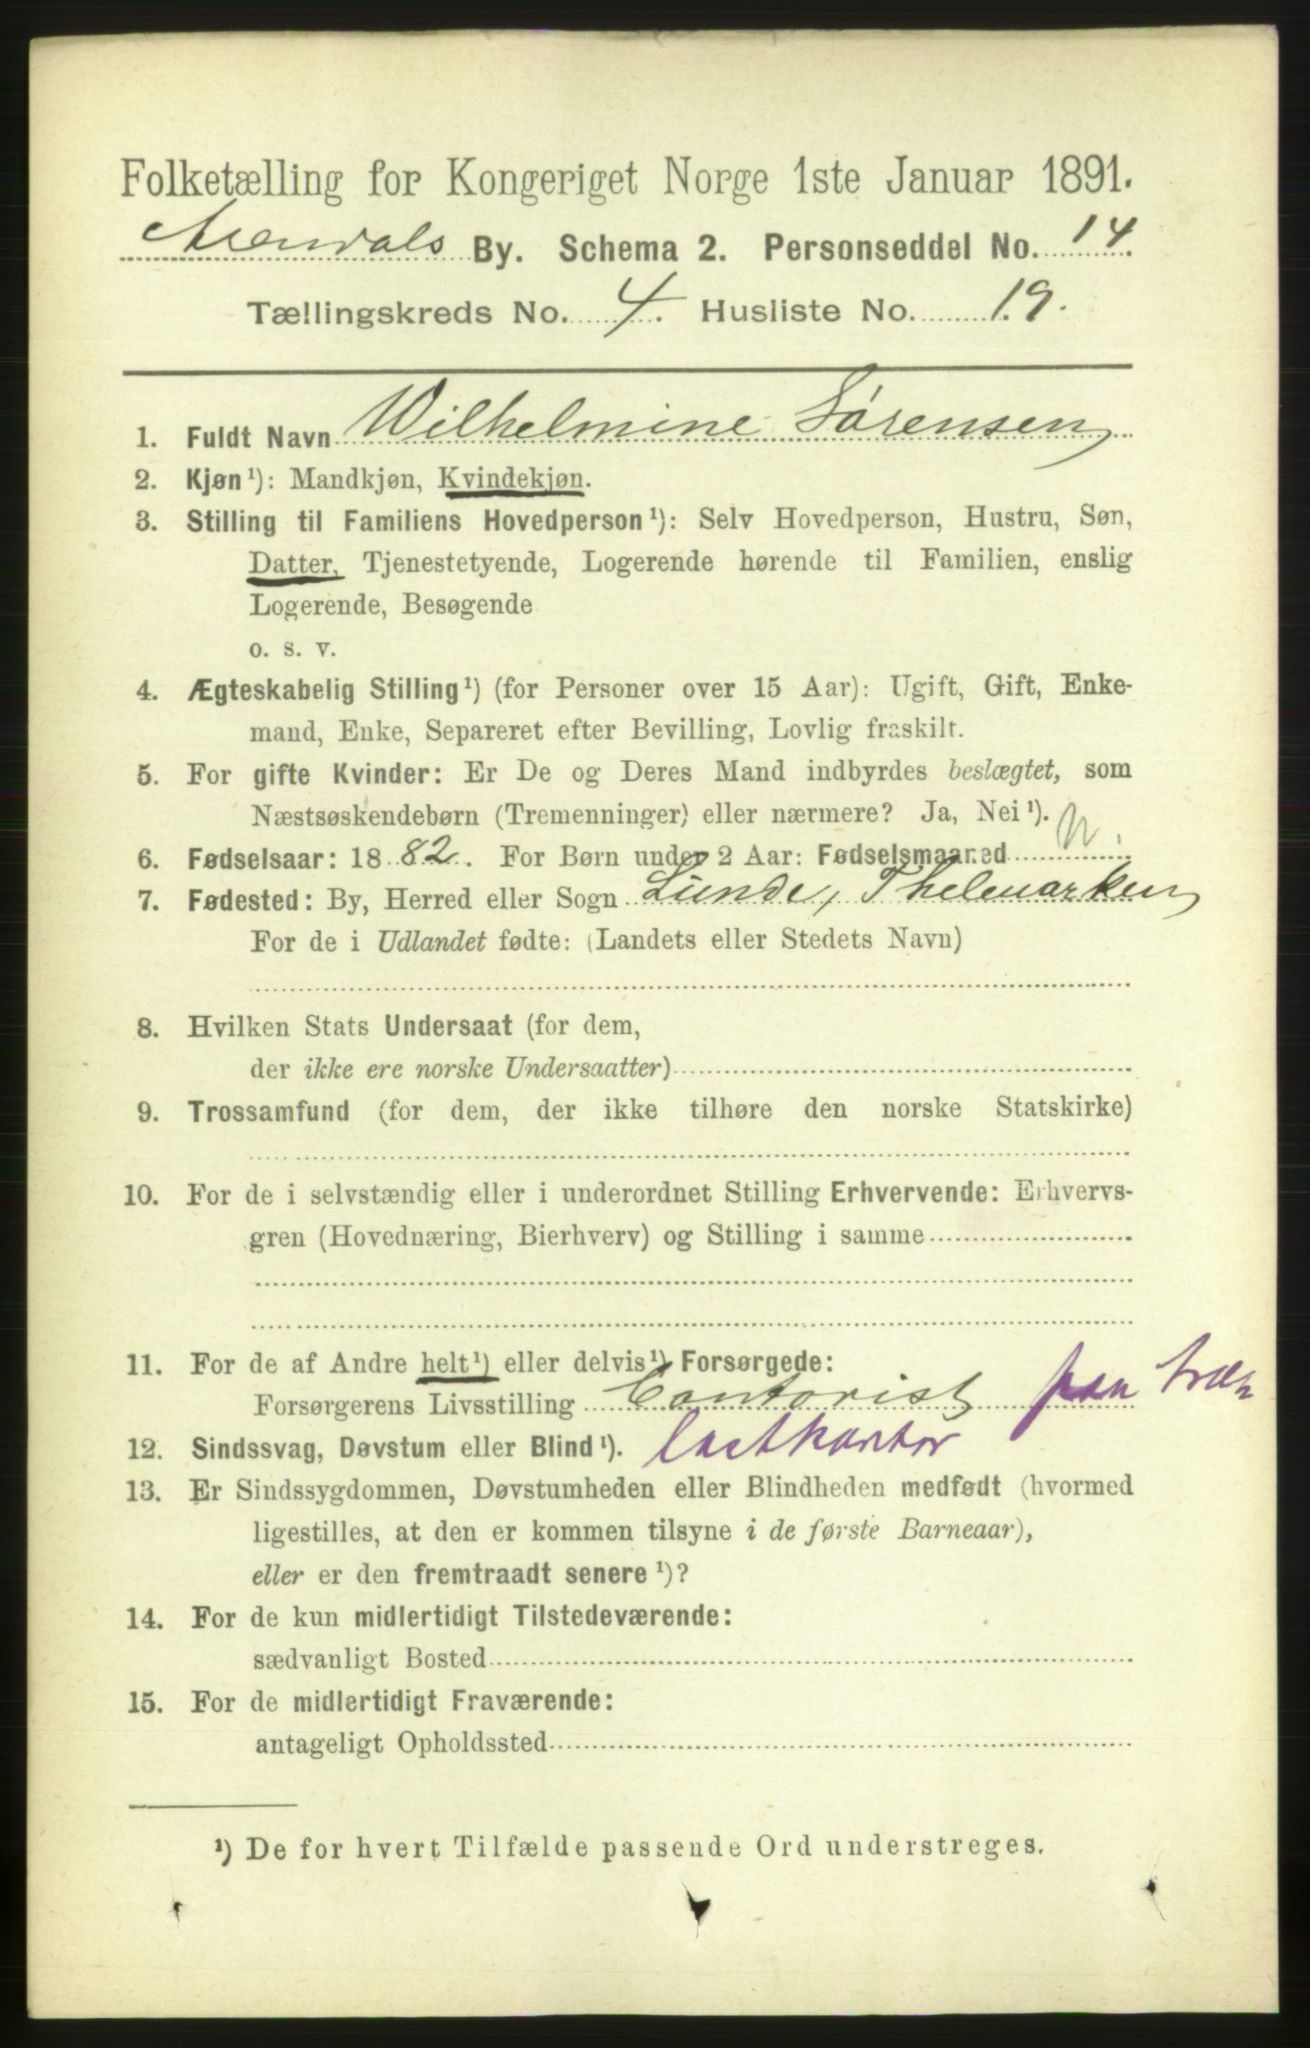 Folketælling for Kongeriget Norge 1ste Januar 1891.
Arendals By. Schema 2. Personseddel No. 14.
Tællingskreds No. 4. Husliste No. 19.
1. Fuldt Navn Wilhelmine Sørensen
2. Kjøn¹): Mandkjøn, Kvindekjøn.
3. Stilling til Familiens Hovedperson¹): Selv Hovedperson, Hustru, Søn,
Datter, Tjenestetyende, Logerende hørende til Familien, enslig
Logerende, Besøgende
o. s. v.
4. Ægteskabelig Stilling¹) (for Personer over 15 Aar): Ugift, Gift, Enke-
mand, Enke, Separeret efter Bevilling, Lovlig fraskilt.
5. For gifte Kvinder: Er De og Deres Mand indbyrdes beslægtet, som
Næstsøskendebørn (Tremenninger) eller nærmere? Ja, Nei¹).
6. Fødselsaar: 1882. For Børn under 2 Aar: Fødselsmaaned n.
7. Fødested: By, Herred eller Sogn Lunde, Thelemarken
For de i Udlandet fødte: (Landets eller Stedets Navn)
8. Hvilken Stats Undersaat (for dem,
der ikke ere norske Undersaatter)
9. Trossamfund (for dem, der ikke tilhøre den norske Statskirke)
10. For de i selvstændig eller i underordnet Stilling Erhvervende: Erhvervs-
gren (Hovednæring, Bierhverv) og Stilling i samme
11. For de af Andre helt¹) eller delvis¹) Forsørgede:
Forsørgerens Livsstilling Contorist paa træ-
12. Sindssvag, Døvstum eller Blind¹). lastkontor
13. Er Sindssygdommen, Døvstumheden eller Blindheden medfødt (hvormed
ligestilles, at den er kommen tilsyne i de første Barneaar),
eller er den fremtraadt senere¹)?
14. For de kun midlertidigt Tilstedeværende:
sædvanligt Bosted
15. For de midlertidigt Fraværende:
antageligt Opholdssted
¹) De for hvert Tilfælde passende Ord understreges.